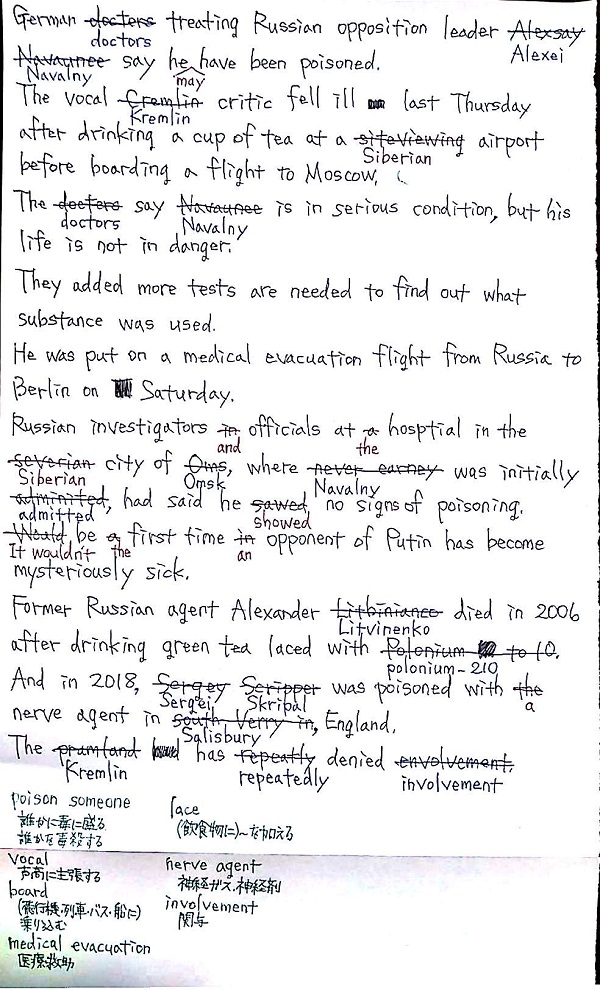 German docters treating Russian opposition leader Alexsay
doctors Alexei
Navaunee say he have been poisoned.
Navalny may
The vocal Cremlin critic fell ill last Thursday
Kremlin
after drinking a cup of tea at a siteviewing airport
Siberian
before boarding a flight to Moscow.
The docters say Navaunee is in serious condition, but his
doctors Navalny
life is not in danger.
They added more tests are needed to find out what
substance was used.
He was put on a medical evacuation flight from Russia to
Berlin on Saturday.
Russian investigators in officials at a hosptial in the
and the
severian city of Oms, where never earney was initially
Siberian Omsk Navalny
adminited, had said he sawed no signs of poisoning.
admitted showed
Would be a first time in opponent of Putin has become
It wouldn't the an
mysteriously sick.
Former Russian agent Alexander Litbinianco died in 2006
Litvinenko
after drinking green tea laced with Polonium to 10.
polonium-210
And in 2018, Sergey Scripper was poisoned with the
Sergei Skripal a
nerve agent in south Verry in, England.
Salisbury
The has repeatly denied envolvement.
Kremlin repeatedly involvement
poison someone lace
誰かに毒に盛る (飲食物に)～を加える
誰かを毒殺する
vocal nerve agent
声高に主張する 神経ガス・神経剤
board involvement
(飛行機・列車・バス・船に) 関与
乗り込む
medical evacuation
医療救助